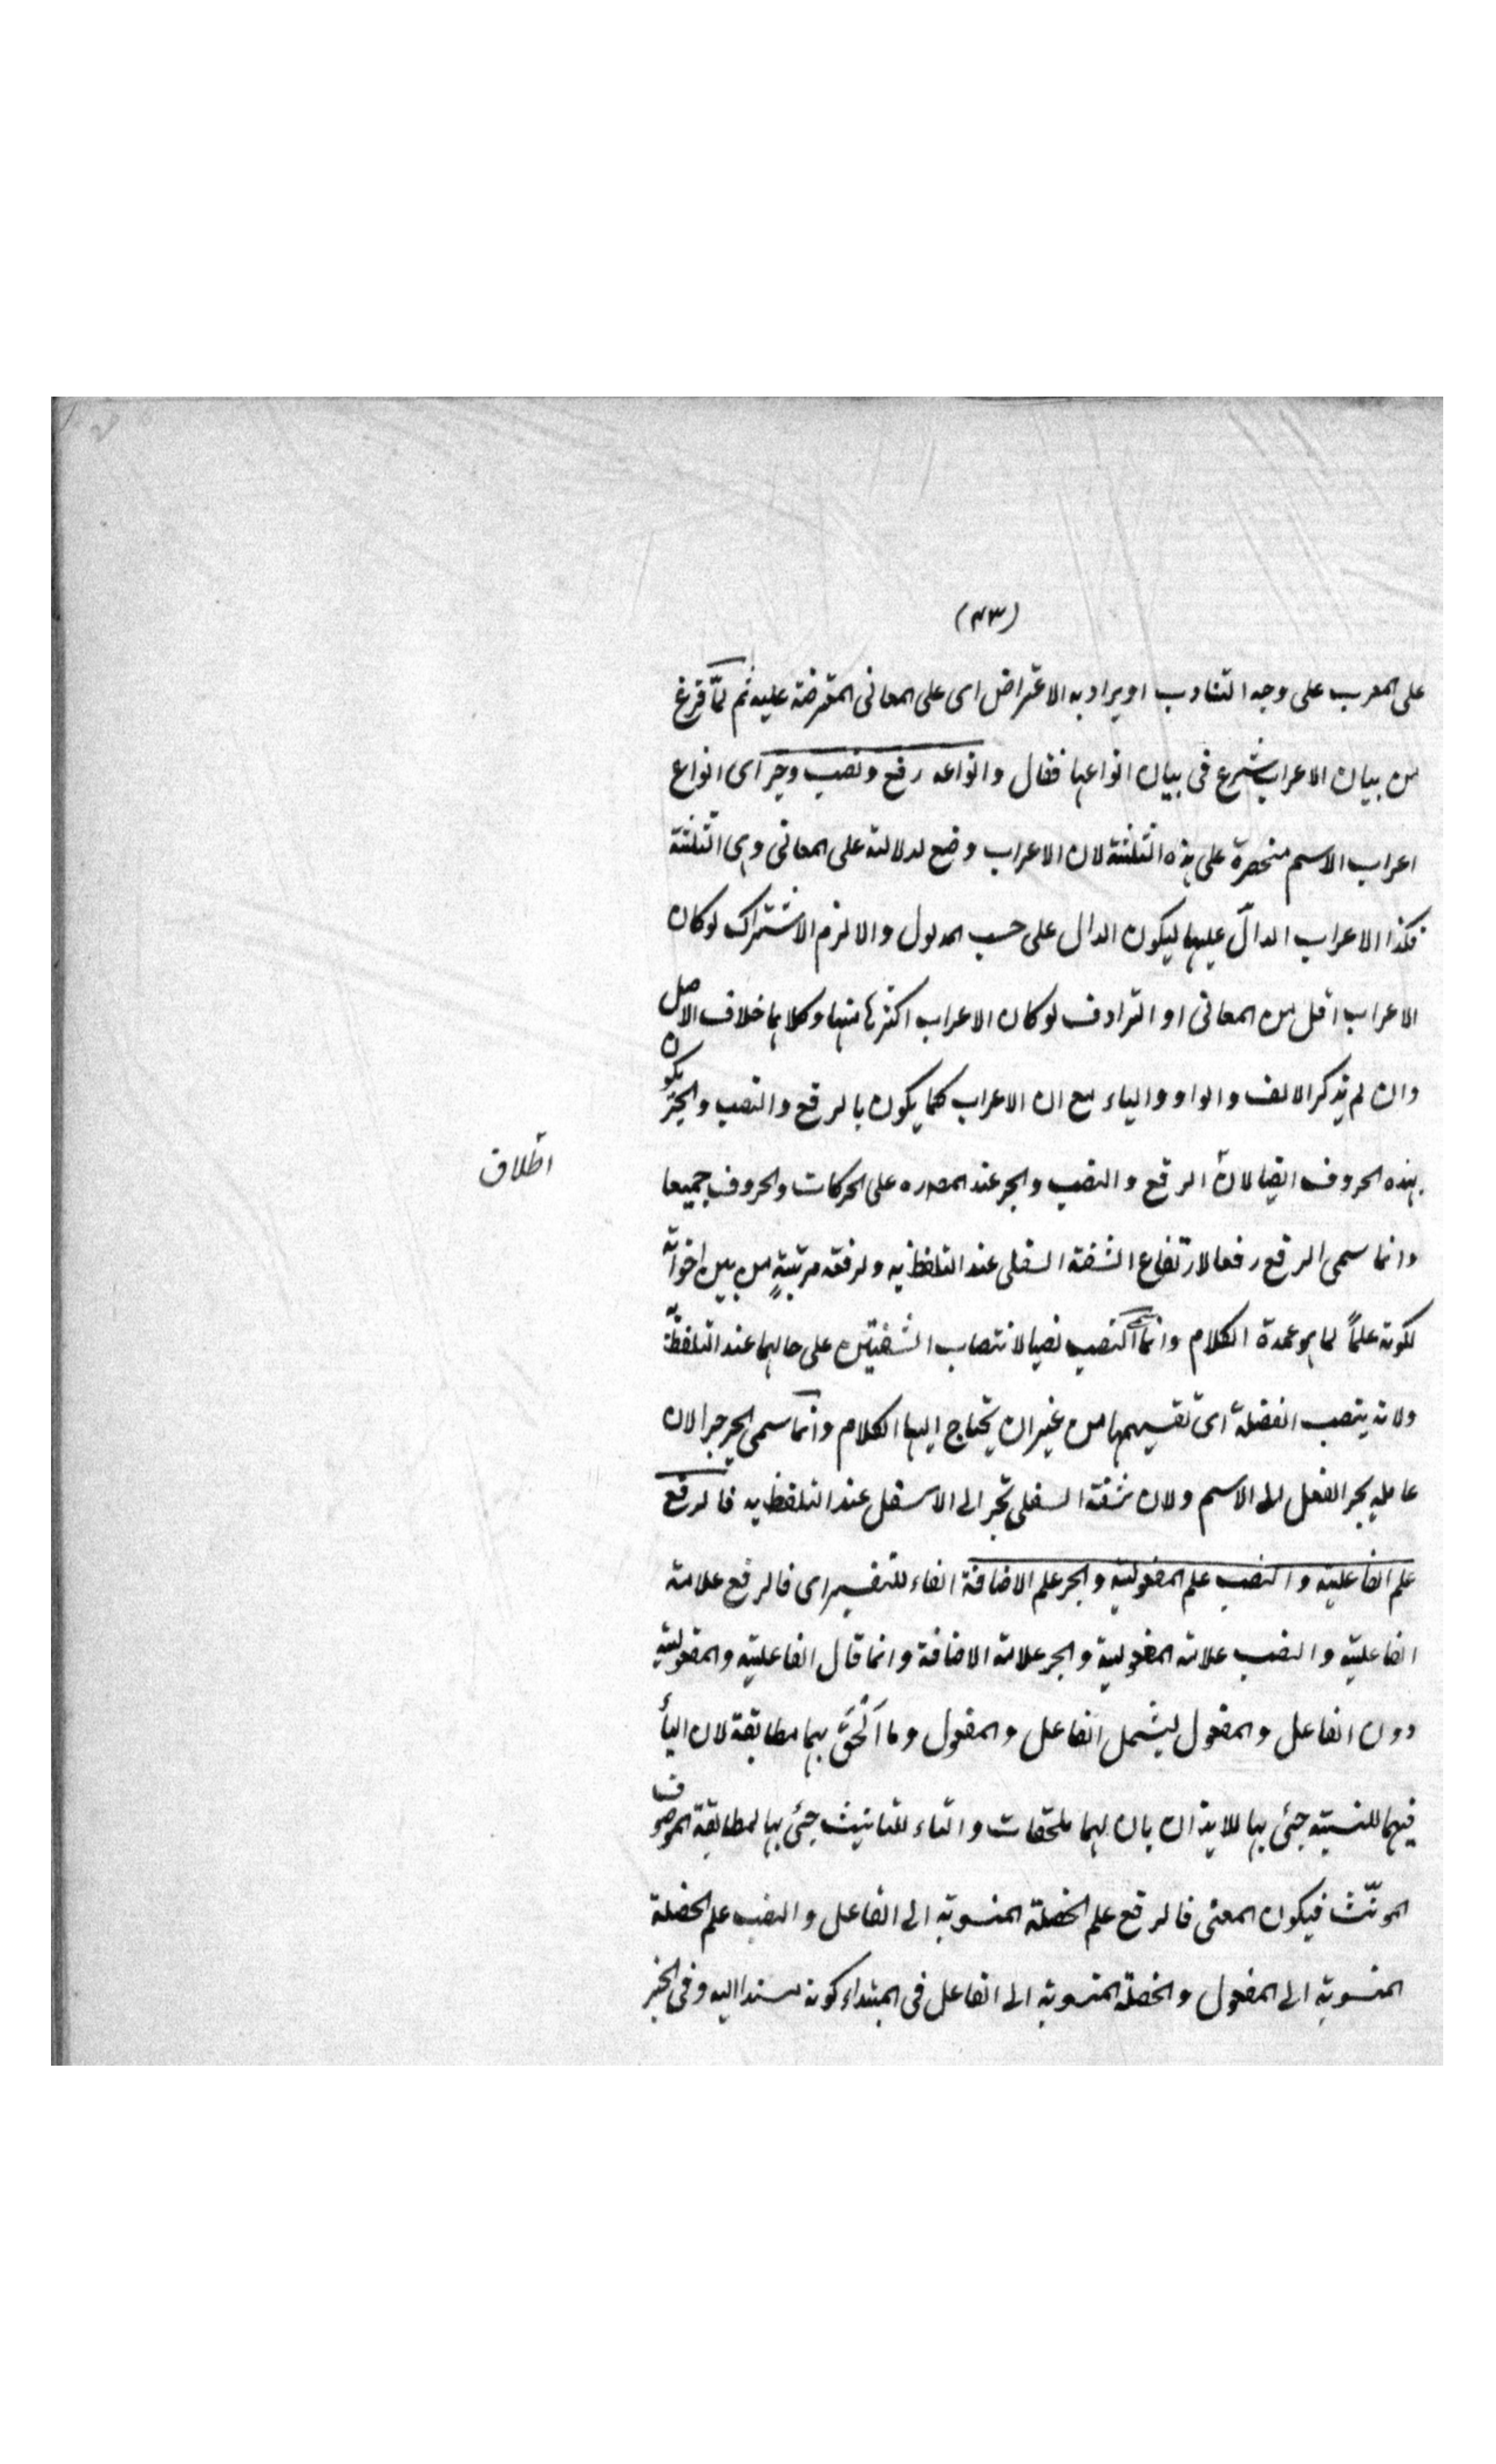 (٤٣)
على المعرب على وجه التناوب او يراد به الاعتراض اى على المعانى المقترضة عليه ثم لمّا فرغ
من بيان الاعراب شرع فى بيان انواعها فقال وانواعه رفع ونصب وجر اى انواع
اعراب الاسم منحصرة على هذه الثلثة لان الاعراب وضع لدلالته على المعانى وهى الثلثة
فكذا الاعراب الدالّ عليها ليكون الدال على حسب المدلول والا لزم الاشتراك لو كان
الاعراب اقل من المعانى او الترادف لو كان الاعراب اكثرها منها وكلاهما خلاف الاصل
وان لم يذكر الالف والواو والياء مع ان الاعراب كما يكون بالرفع والنصب والجرّ يكون
بهذه الحروف ايضا لانّ الرفع والنصب والجر عند المص ره على الحركات والحروف جميعا
اطلاق
وانما سمى الرفع رفعا لارتفاع الشفة السفلى عند التلفظ به ولرفعه مرتبةٍ من بين اخواته
لكونه علماً لما هو عمدة الكلام وانما سمى النصب نصبا لانتصاب الشفتين على حالهما عند التلفظ به
ولانه ينصب الفضلة اى تقسيمها من غير ان يحتاج اليها الكلام وانما سمى الجر جرا لان
عامله يجر الفعل الى الاسم ولان شفة السفلى تجر الى الاسفل عند التلفظ به فالرفع
علم الفاعلية والنصب علم المفعولية والجر علم الاضافة الفاء للتفسير اى فالرفع علامة
الفاعلية والنصب علامة المفعولية والجر علامة الاضافة وانما قال الفاعلية والمفعولية
دون الفاعل والمفعول ليشمل الفاعل والمفعول وما اُلْحِقَ بهما مطابقة لان اليأ
فيهما للنسبة جئ بها للايذان بان لهما ملحقات والتاء للتانيث جئ بها لمطابقة الموصوف
المونّث فيكون المعنى فالرفع علم الخصلة المنسوبة الى الفاعل والنصب علم الخصلة
المنسوبة الى المفعول والخصلة المنسوبة الى الفاعل فى المبتداء كونه مسندا اليه وفى الخبر